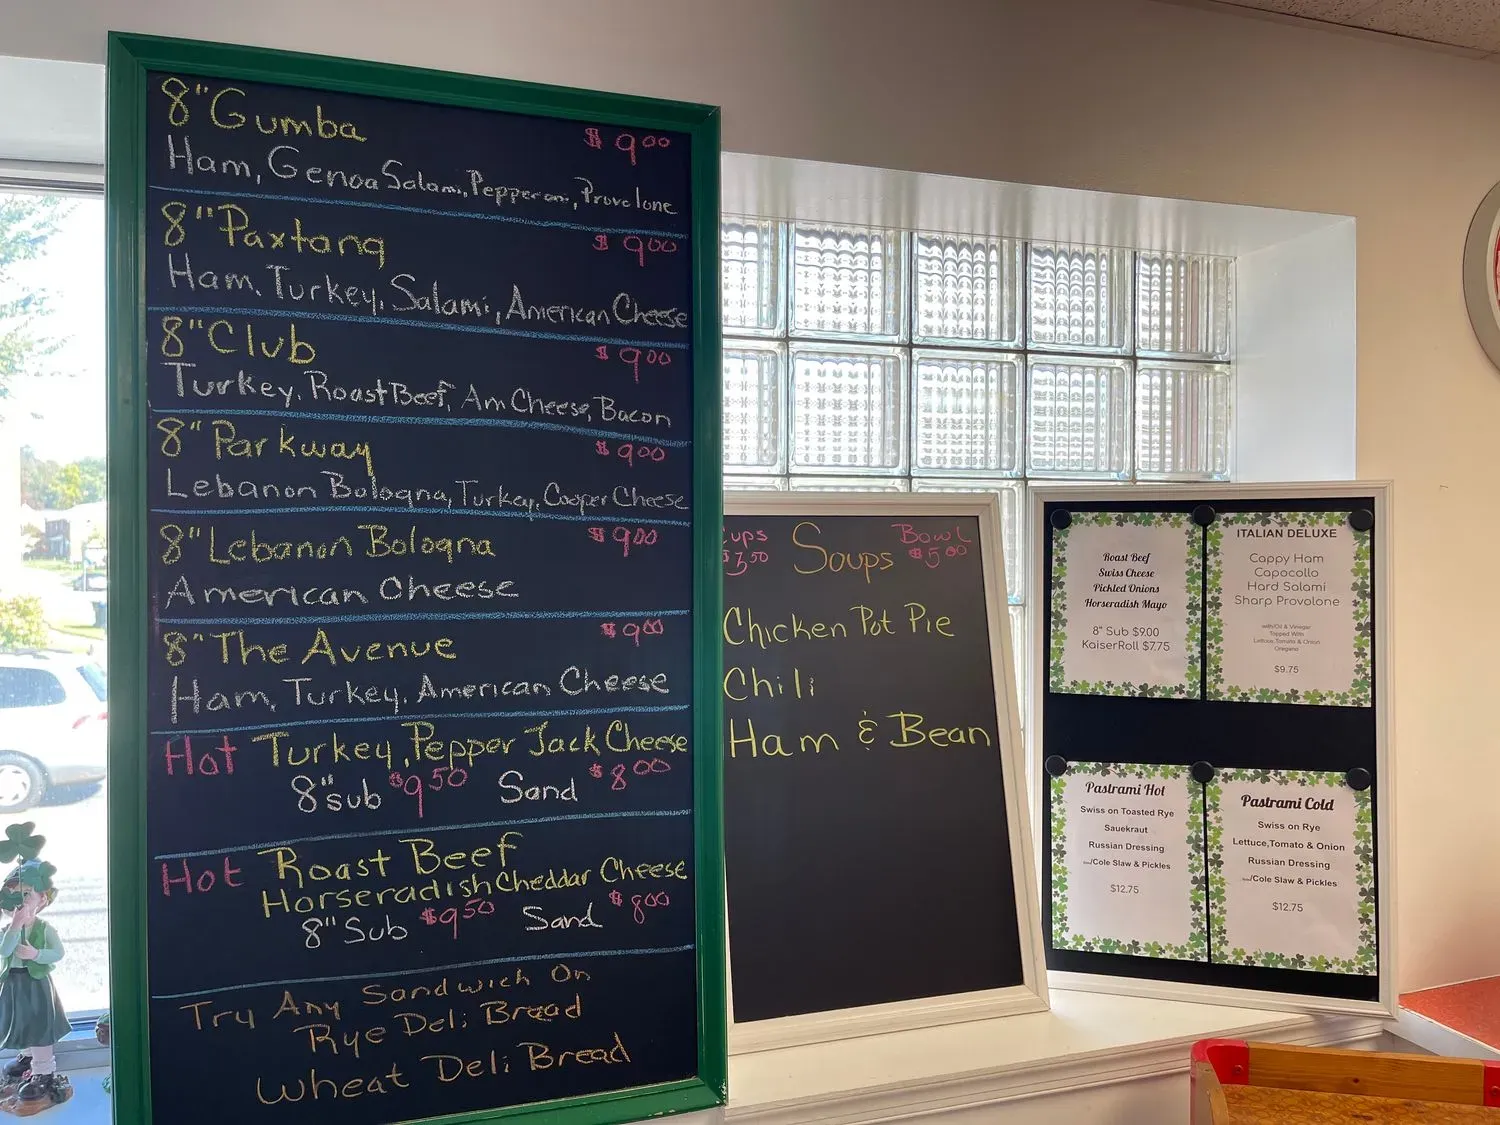 8" Gumba $9.00
Ham, Genoa Salami, Pepperoni, Provolone
8" Paxtang $9.00
Ham, Turkey, Salami, American Cheese
8" Club $9.00
Turkey, Roast Beef, Am Cheese, Bacon
8" Parkway $9.00
Lebanon Bologna, Turkey, Cooper Cheese
8" Lebanon Bologna $9.00
American Cheese
8" The Avenue $9.00
Ham, Turkey, American Cheese
Hot Turkey, Pepper Jack Cheese
8" sub $9.50 Sand $8.00
Hot Roast Beef
Horseradish Cheddar Cheese
8" Sub $9.50 Sand $8.00
Try Any Sandwich On
Rye Deli Bread
Wheat Deli Bread
ups Soups Bowl
$3.50 $5.00
Chicken Pot Pie
Chili
Ham & Bean
Roast Beef
Swiss Cheese
Pickled Onions
Horseradish Mayo
8" Sub $9.00
KaiserRoll $7.75
ITALIAN DELUXE
Cappy Ham
Capocollo
Hard Salami
Sharp Provolone
with/Oil & Vinegar
Topped With
Lettuce, Tomato & Onion
Oregano
$9.75
Pastrami Hot
Swiss on Toasted Rye
Saukraut
Russian Dressing
/Cole Slaw & Pickles
$12.75
Pastrami Cold
Swiss on Rye
Lettuce,Tomato & Onion
Russian Dressing
/Cole Slaw & Pickles
$12.75